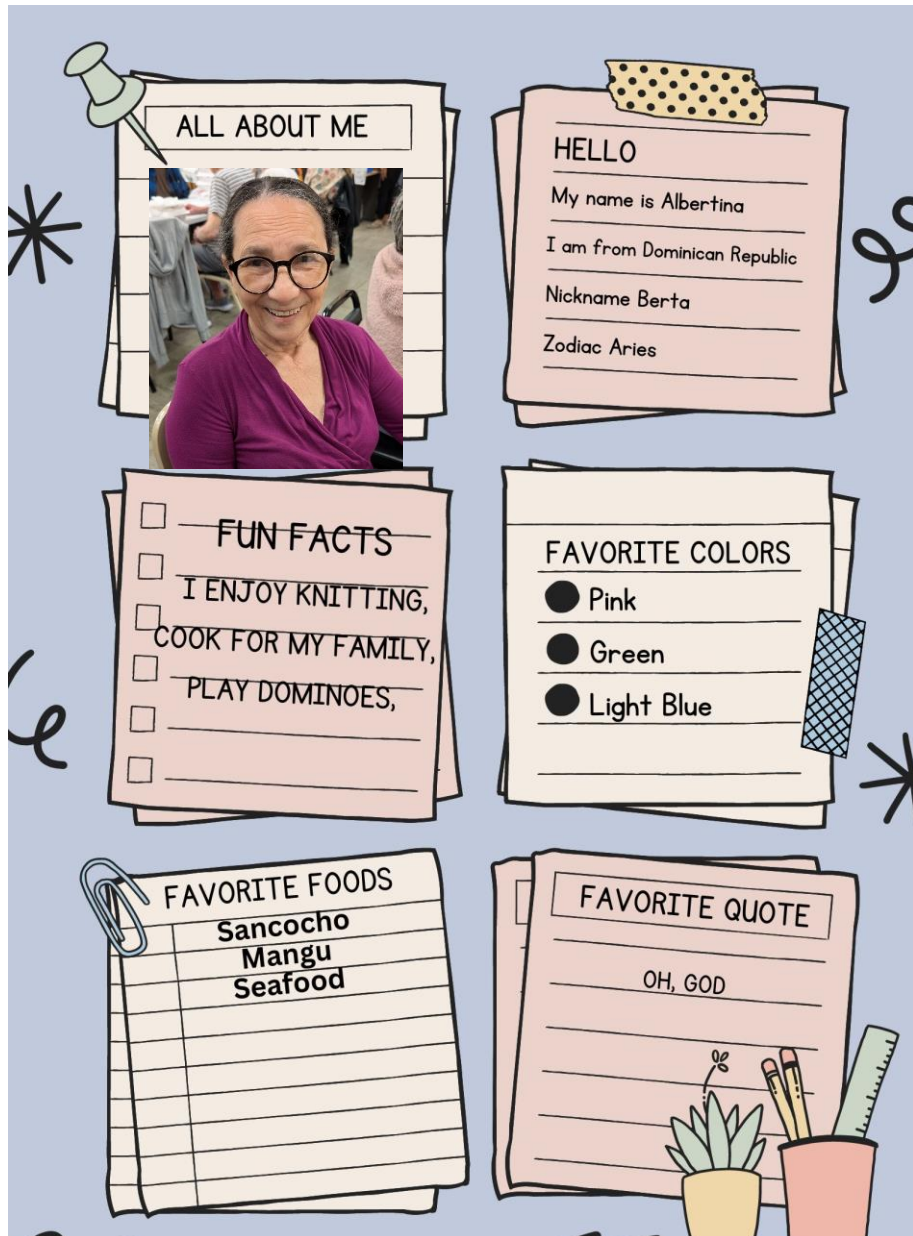 ALL ABOUT ME
HELLO
My name is Albertina
I am from Dominican Republic
Nickname Berta
Zodiac Aries
FUN FACTS
I ENJOY KNITTING,
COOK FOR MY FAMILY,
PLAY DOMINOES,
FAVORITE COLORS
Pink
Green
Light Blue
FAVORITE FOODS
Sancocho
Mangu
Seafood
FAVORITE QUOTE
OH, GOD